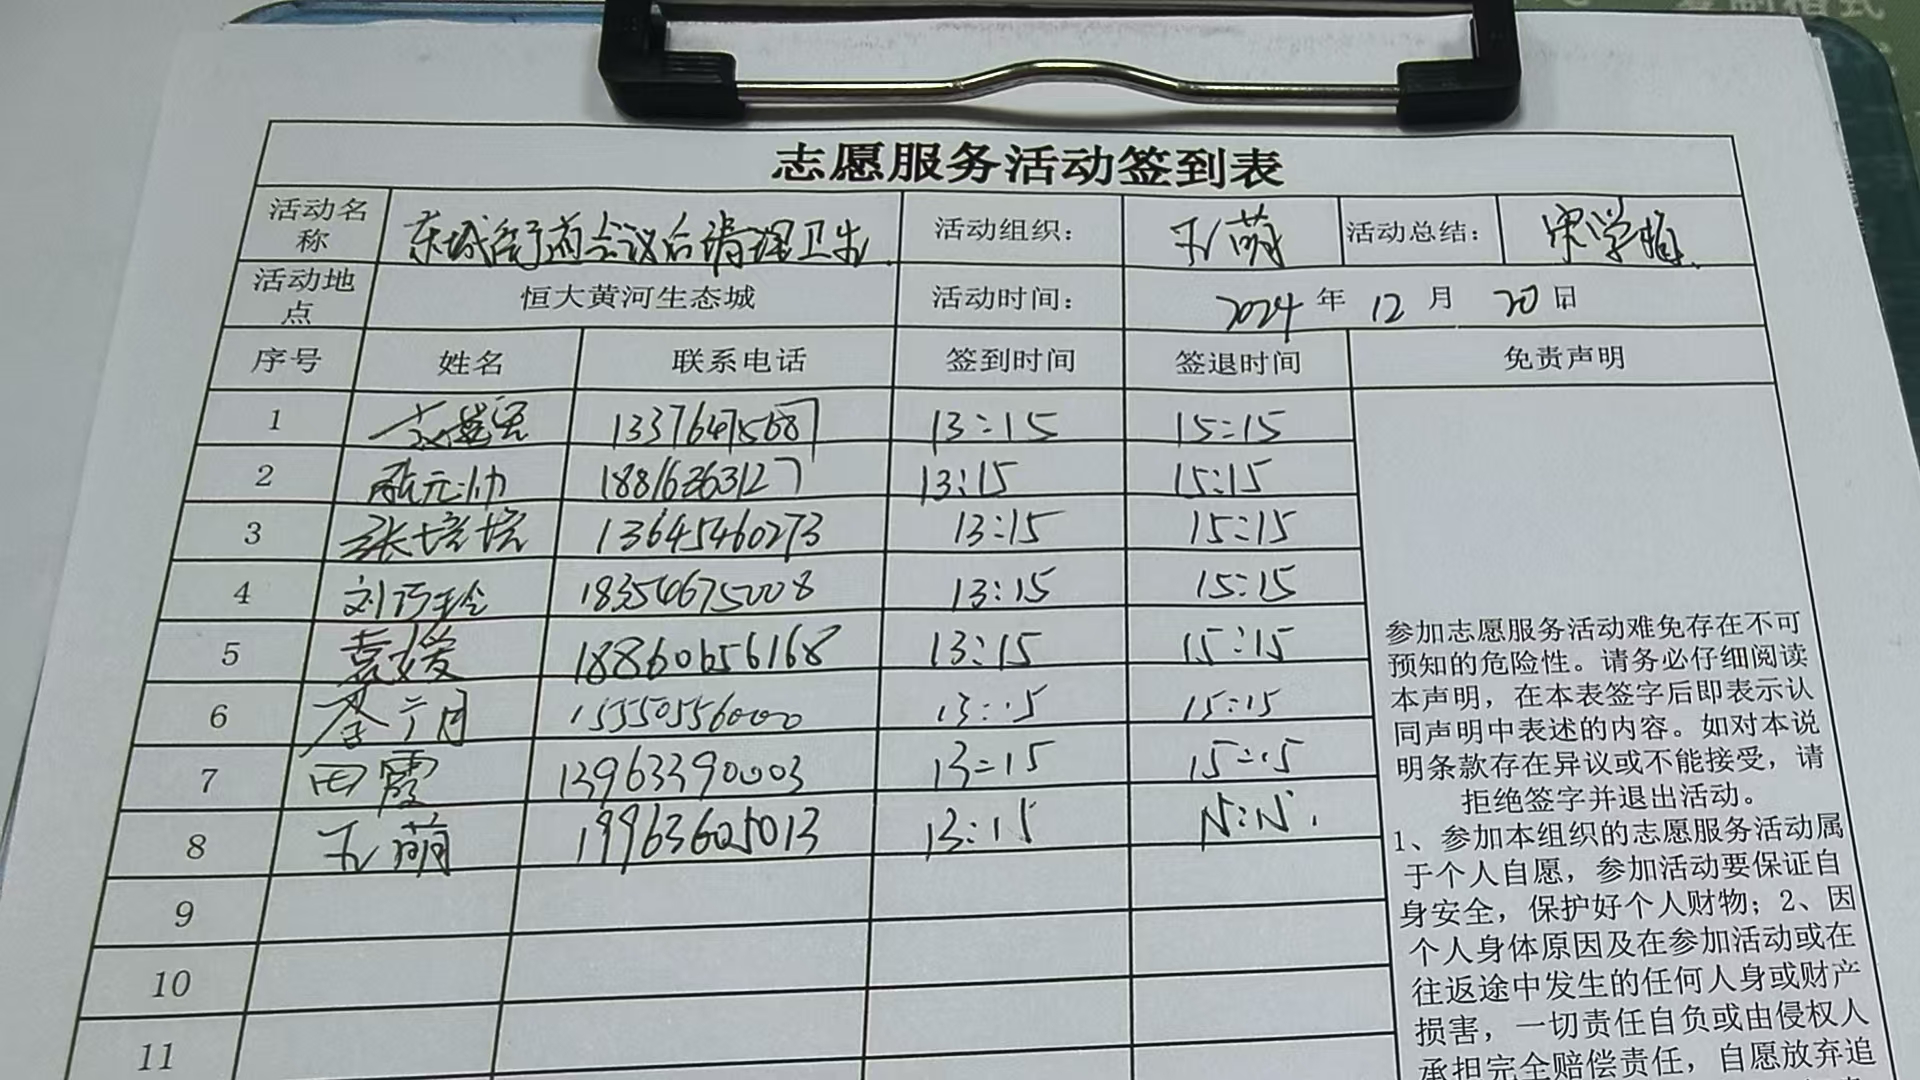 志愿服务活动签到表
活动名称 东城街前会议后清理卫生 活动组织： 孔萌 活动总结： 宋学雄
活动地点 恒大黄河生态城 活动时间： 2024年12月20日
序号 姓名 联系电话 签到时间 签退时间 免责声明
1 13:15 15:15
2 张元帅 18816363127 13:15 15:15
3 张培培 13645460273 13:15 15:15
4 刘巧玲 18354675008 13:15 15:15
5 袁媛 18860656168 13:15 15:15
6 15550556000 13:15 15:15
7 田霞 13963390003 13:15 15:15
8 孔萌 19963605013 13:15 15:15
9
10
11
参加志愿服务活动难免存在不可
预知的危险性。请务必仔细阅读
本声明，在本表签字后即表示认
同声明中表述的内容。如对本说
明条款存在异议或不能接受，请
拒绝签字并退出活动。
1、参加本组织的志愿服务活动属
于个人自愿，参加活动要保证自
身安全，保护好个人财物；2、因
个人身体原因及在参加活动或在
往返途中发生的任何人身或财产
损害，一切责任自负或由侵权人
承担完全赔偿责任，自愿放弃追